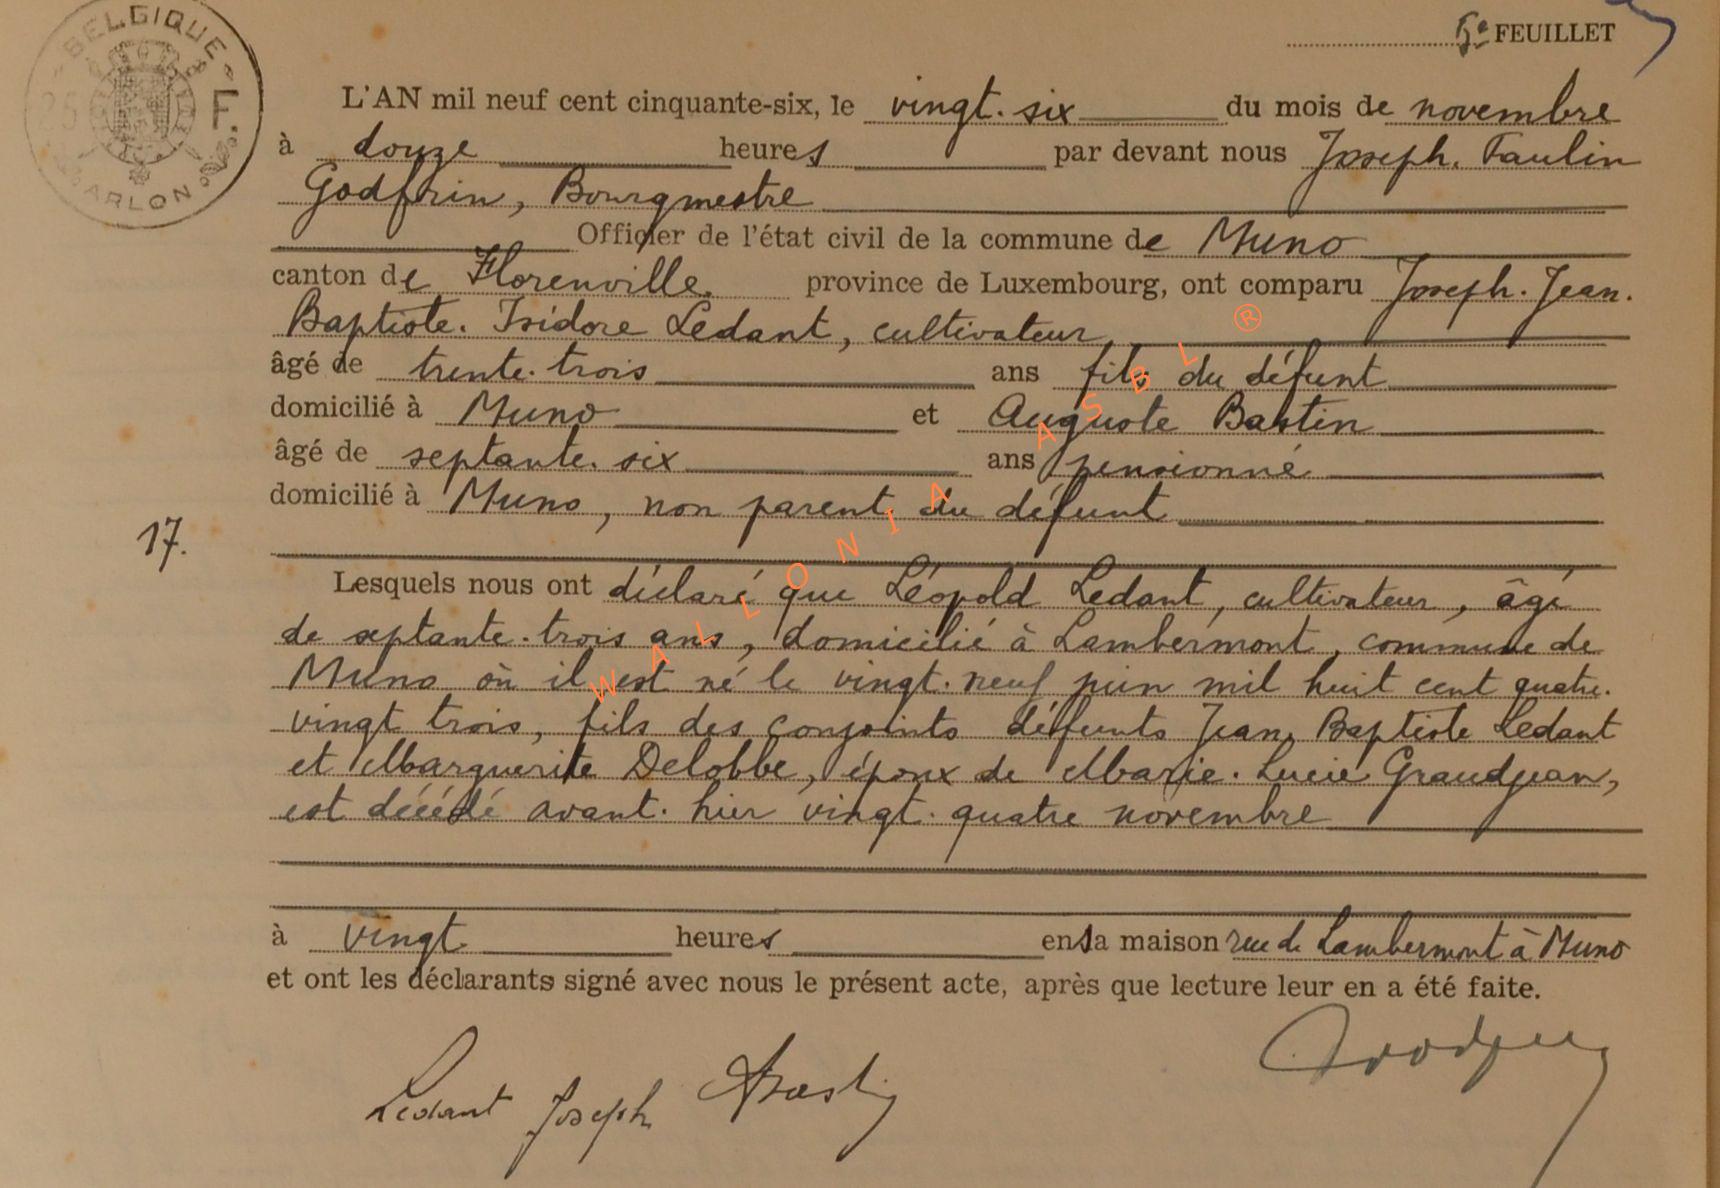 BELGIQUE
25 F.
ARLON
5e FEUILLET
L'AN mil neuf cent cinquante-six, le vingt-six du mois de novembre
à douze heures par devant nous Joseph-Paulin
Godfrin, Bourgmestre
Officier de l'état civil de la commune de Muno
canton de Florenville, province de Luxembourg, ont comparu Joseph-Jean-
Baptiste-Isidore Ledant, cultivateur
âgé de trente-trois ans fils du défunt
domicilié à Muno et Auguste Bastin
âgé de septante-six ans pensionné
domicilié à Muno, non parent du défunt
17.
Lesquels nous ont déclaré que Léopold Ledant, cultivateur, âgé
de septante-trois ans, domicilié à Lambermont, commune de
Muno où il est né le vingt-neuf juin mil huit cent quatre-
vingt trois, fils des conjoints défunts Jean-Baptiste Ledant
et Marguerite Delobbe, époux de Marie-Lucie Grandjean,
est décédé avant-hier vingt-quatre novembre
à vingt heures en sa maison rue de Lambermont à Muno
et ont les déclarants signé avec nous le présent acte, après que lecture leur en a été faite.
Ledant Joseph ABastin
WALLONIA ASBL ®